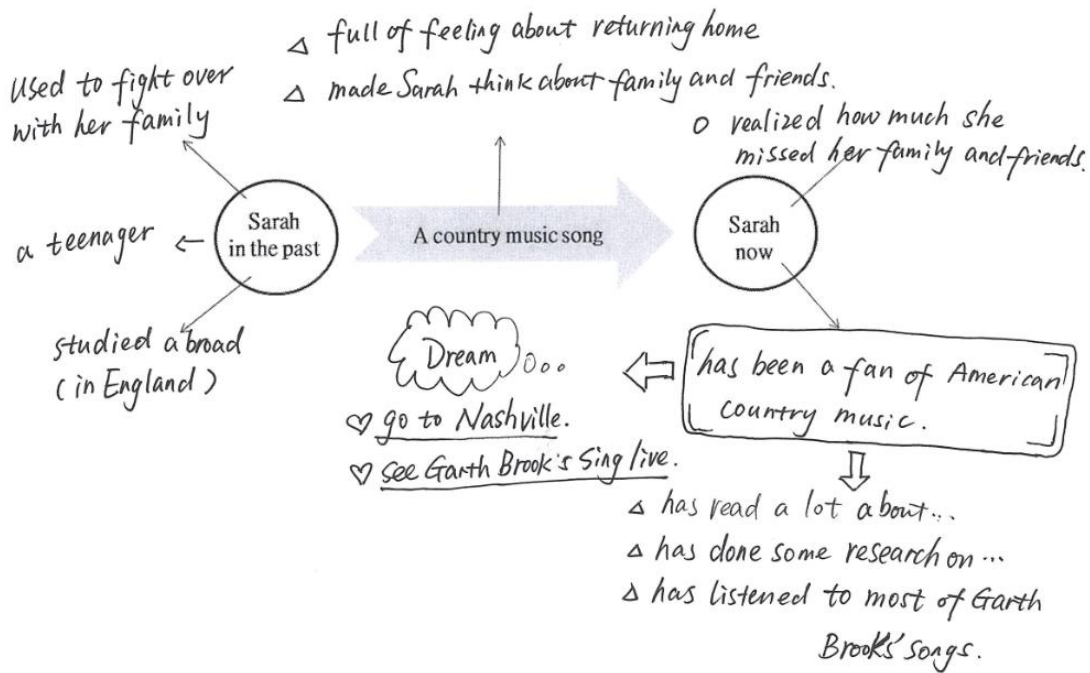 △ full of feeling about returning home
△ made Sarah think about family and friends.
Used to fight over
with her family
O realized how much she
missed her family and friends.
Sarah
in the past
a teenager
A country music song
Sarah
now
studied abroad
(in England)
Dream
♡ go to Nashville.
♡ see Garth Brook's Sing live.
has been a fan of American
country music.
△ has read a lot about...
△ has done some research on ...
△ has listened to most of Garth
Brooks' songs.